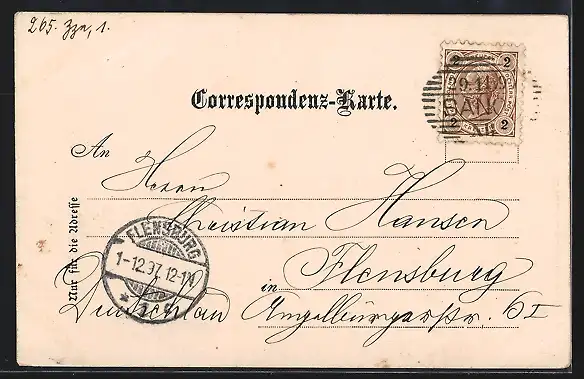 265.
Correspondenz-Karte.
2 2
29 11
BANK
2 2
An
Herrn
Christian Hansen
Flensburg
in
Deutschland Angelburgerstr. 6 I
Nur für die Adresse
FLENSBURG
1-12.97.12-1N
* 1 c